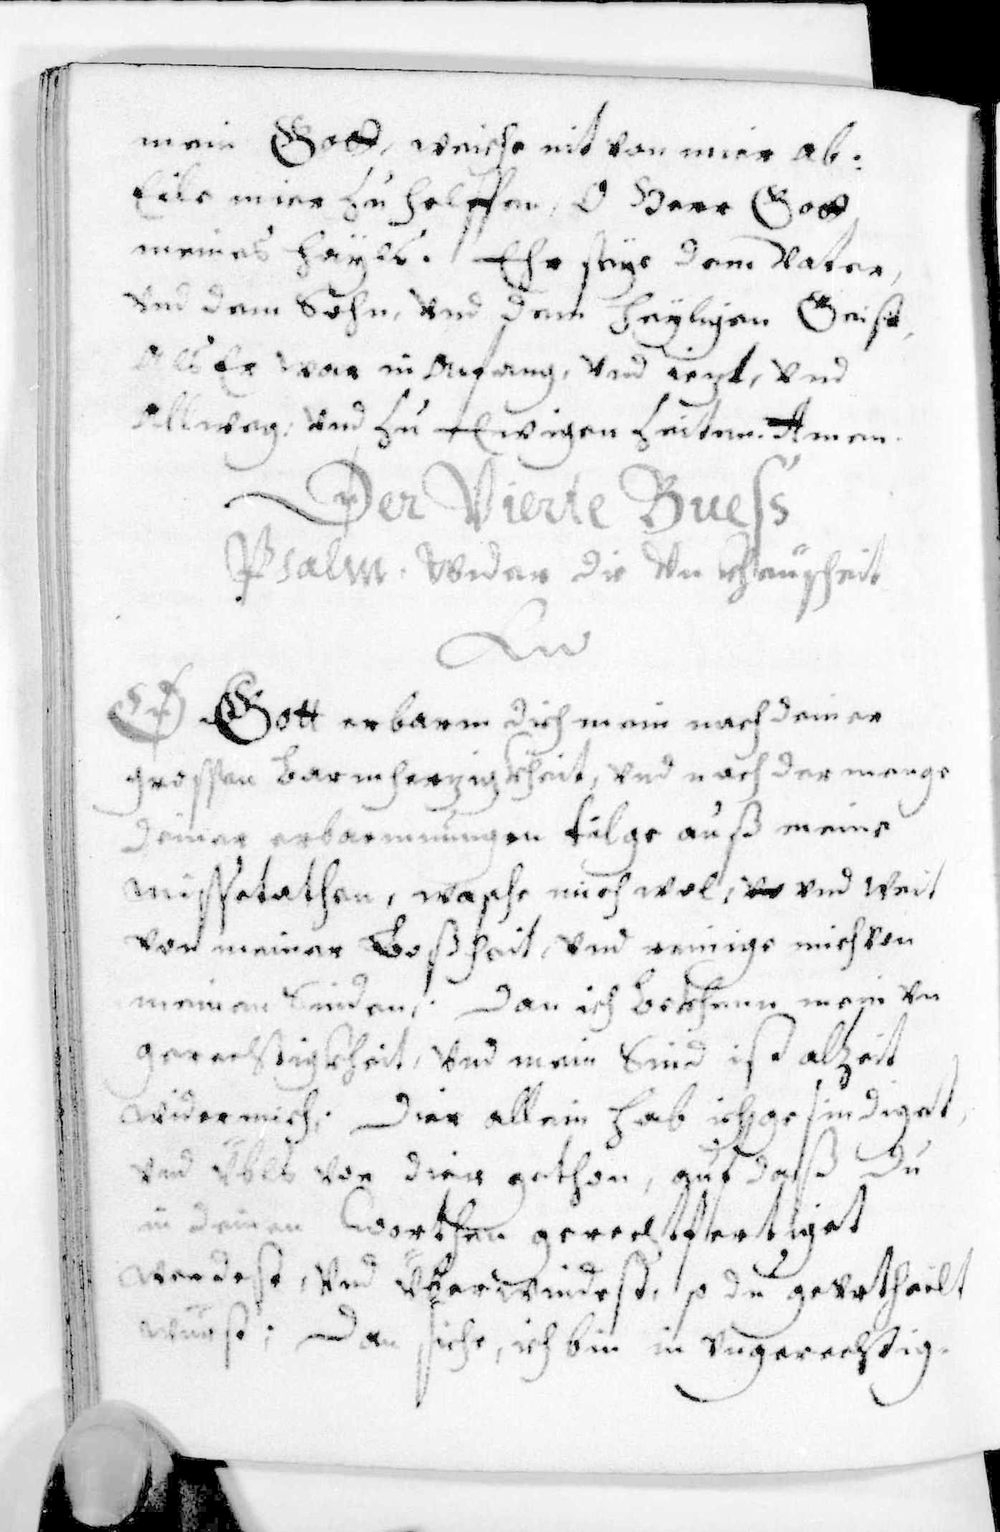 mein Gott, weiche nit von mier ab:
Eile mier zu helffen, O Herr Gott
meines hayls. Ehr seye dem Vater,
vnd dem Sohn, vnd dem heyligen Geist,
Als Er war in Anfang, vnd iezt, vnd
Allweg, vnd zu Ewigen Zeiten. Amen.
Der Vierte Buess
Psalm. Wider die Vnkheüschheit
O Gott erbarm dich mein nach deiner
grossen barmherzigkheit, vnd nach der menge
deiner erbarmnungen tilge auß meine
missetathen, wasche mich wol, vnd weit
von meiner Boßheit, vnd reinige mich von
meinen Sinden; Dan ich bekhenn mein vn
gerechtigkheit, vnd mein Sind ist alzeit
wider mich; Dier allein hab ich gesindiget,
vnd übels vor dier gethon, auf daß Du
in deinen Worthen gerechtfertiget
werdest, vnd überwindest, so du gevrtheilt
würst; Dan siehe, ich bin in vngerechtig-